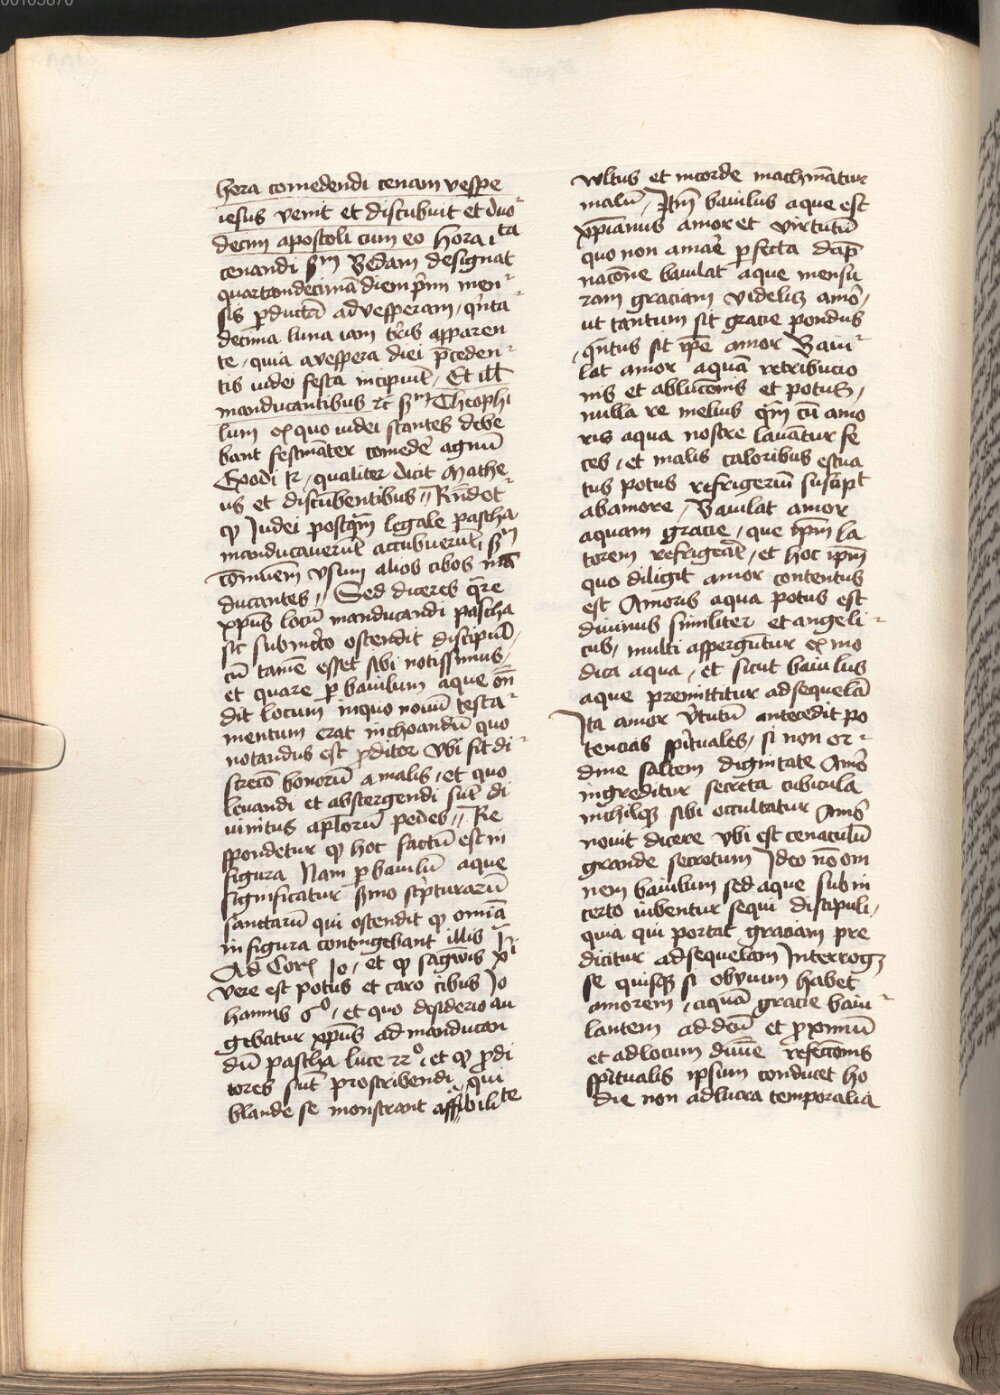 00103870
hora comedendi cenam vespe
iesus venit et discubuit et duo
decim apostoli cum eo hora i ta
cenandi sm Bedam designat
quartamdecimā diem p̄mi men
sis pductā ad vesperam, qnta
decima luna iam tris apparen
te, quia a vespera diei pceden
tis iudei festa incipiūt, Et ill
manducantibus rc sm Theophi
lum ex quo iudei stantes debe
bant festinater comede agnū
Exodi 12, qualiter dicit Mathe
us et discumbentibus Rndet
q Iudei postqm legale pascha
manducauerūt accubuerūt, sm
comunem vsum alios cibos mā
ducantes Sed diceres qre
xpus locū manducandi pascha
sic sub incto ostendit discipul,
cū tamē esset sibi notissimus,
et quare p baiulum aque on
dit locum in quo nouū testa
mentum erat inchoandū quo
notandus est pditor vbi fit di
screcō bonorū a malis, et quo
leuandi et abstergendi sut di
uinitus aplorū pedes Re
spondetur q hoc factū est in
figura Nam p baiulū aque
significatur smo scpturarū
sanctarū qui ostendit q omīa
in figura contingebant illis 
Ad Cor 10, et q sagwis xi
vere est potus et caro cibus Io
hannis 6o, et quo desiderio an
gebatur xpus ad manducan
dū pascha luce 22o, et q pdi
tores sūt proscribendi qui
blande se monstrant affibilite
vultus et in corde machinātur
malū, Itm baiulus aque est
xpianus amor et virtutū
quo non amare pfecta dāp
nacōne baiulat aque mensu
ram graciam videlicz amor,
ut tantum sit gracie pondus
qntus sit ipe amor Baiu
lat amor aquā retribucio
nis et ablucōnis et potus,
nulla re melius qm cū amo
ris aqua nostre lauātur fe
ces, et malis caloribus estua
tus potus refrigeriū suscipt
ab amore, Baiulat amor
aquam gracie, que ipm la
torem refrigerat, et hoc ipm
quo diligit amor contentus
est Amoris aqua potus est
diuinus similiter et angeli
cus, multi aspergūtur ex mo
dica aqua, et sicut baiulus
aque premittitur ad sequelā
Ita amor vtutū antecedit po
tencias spituales, si non or
dine saltem dignitate Amor
ingreditur secreta cubicula
nichilqz sibi occultatur Amor
nouit dicere vbi est cenaculū
grande secretum Ideo nō om
nem baiulum sed aque sub in
certo iubentur sequi discipuli,
quia qui portat graciam pre
dicitur ad sequelam Interrogz
se quisqz si obuium habet
amorem, aquā gracie baiu
lantem ad deū et pximū
et ad locum diuīe refeccōnis
spiritualis ipsum conducet ho
die non ad lucra temporalia